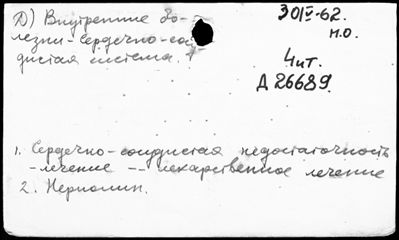 Д) Внутренние бо-
лезни - Сердечно-сосу-
дистая система.
30/V-62.
н.о.
4 ит.
Д 26689.
1. Сердечно-сосудистая недостаточность
- лечение -- лекарственное лечение
2. Нериолин.